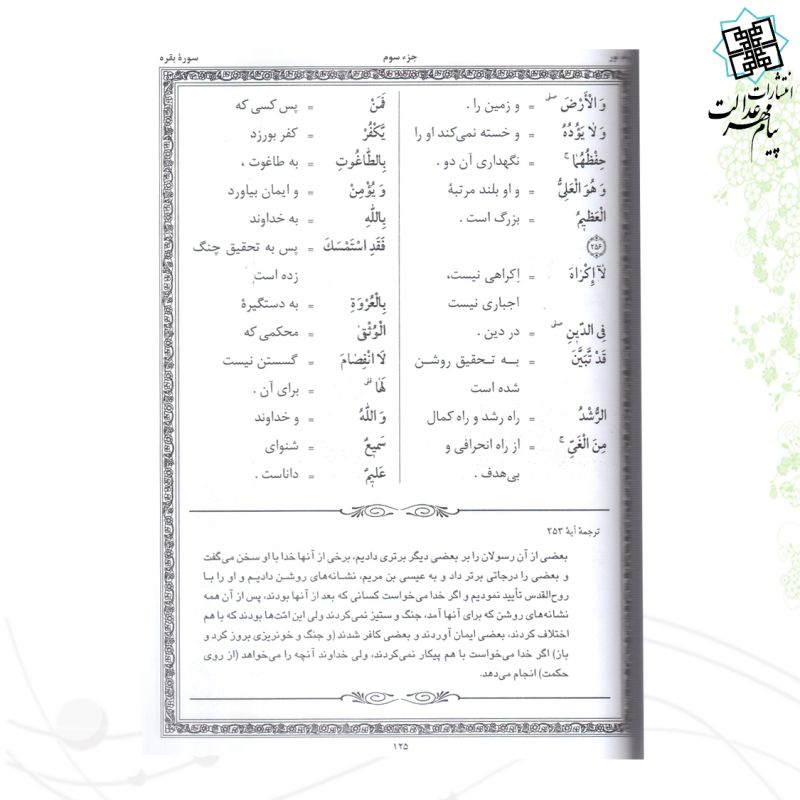 انتشارات
پیام مهر عدالت
جزء سوم
سورهٔ بقره
وَ الْأَرْضَ = و زمین را .
وَ لَا يَؤُدُهُ = و خسته نمی‌کند او را
حِفْظُهُمَا = نگهداری آن دو .
وَ هُوَ الْعَلِيُّ = و او بلند مرتبهٔ
الْعَظِيمُ = بزرگ است .
۲۵۶
لَا إِكْرَاهَ = اِکراهی نیست،
اجباری نیست
فِي الدِّينِ = در دین .
قَدْ تَبَيَّنَ = بـه تـحقیق روشـن
شده است
الرُّشْدُ = راه رشد و راه کمال
مِنَ الْغَيِّ = از راه انحرافی و
بی‌هدف .
فَمَنْ = پس کسی که
يَكْفُرْ = کفر بورزد
بِالطَّاغُوتِ = به طاغوت ،
وَ يُؤْمِنْ = و ایمان بیاورد
بِاللَّهِ = به خداوند
فَقَدِ اسْتَمْسَكَ = پس به تحقیق چنگ
زده است
بِالْعُرْوَةِ = به دستگیرهٔ
الْوُثْقىٰ = محکمی که
لَا انْفِصَامَ = گسستن نیست
لَهَا = برای آن .
وَ اللَّهُ = و خداوند
سَمِيعٌ = شنوای
عَلِيمٌ = داناست .
ترجمهٔ آیهٔ ۲۵۳
بعضی از آن رسولان را بر بعضی دیگر برتری دادیم، برخی از آنها خدا با او سخن می‌گفت
و بعضی را درجاتی برتر داد و به عیسی بن مریم، نشانه‌های روشن دادیم و او را با
روح‌القدس تأیید نمودیم و اگر خدا می‌خواست کسانی که بعد از آنها بودند، پس از آن همه
نشانه‌های روشن که برای آنها آمد، جنگ و ستیز نمی‌کردند ولی این امّت‌ها بودند که با هم
اختلاف کردند، بعضی ایمان آوردند و بعضی کافر شدند (و جنگ و خونریزی بروز کرد و
باز) اگر خدا می‌خواست با هم پیکار نمی‌کردند، ولی خداوند آنچه را می‌خواهد (از روی
حکمت) انجام می‌دهد.
۱۲۵